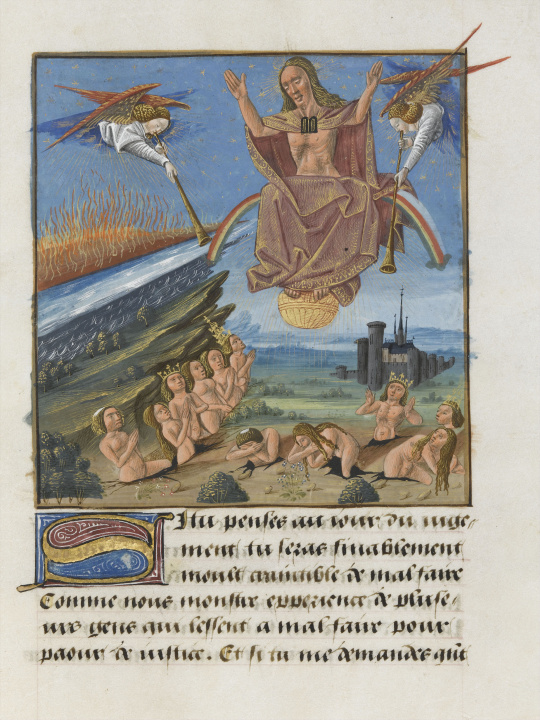 Si tu penses au iour du iuge
ment tu seras finablement
moult craintible de mal faire
Comme nous monstre experience de pluse
urs gens qui lessent a mal faire pour
paour de iustice. Et si tu me demandes